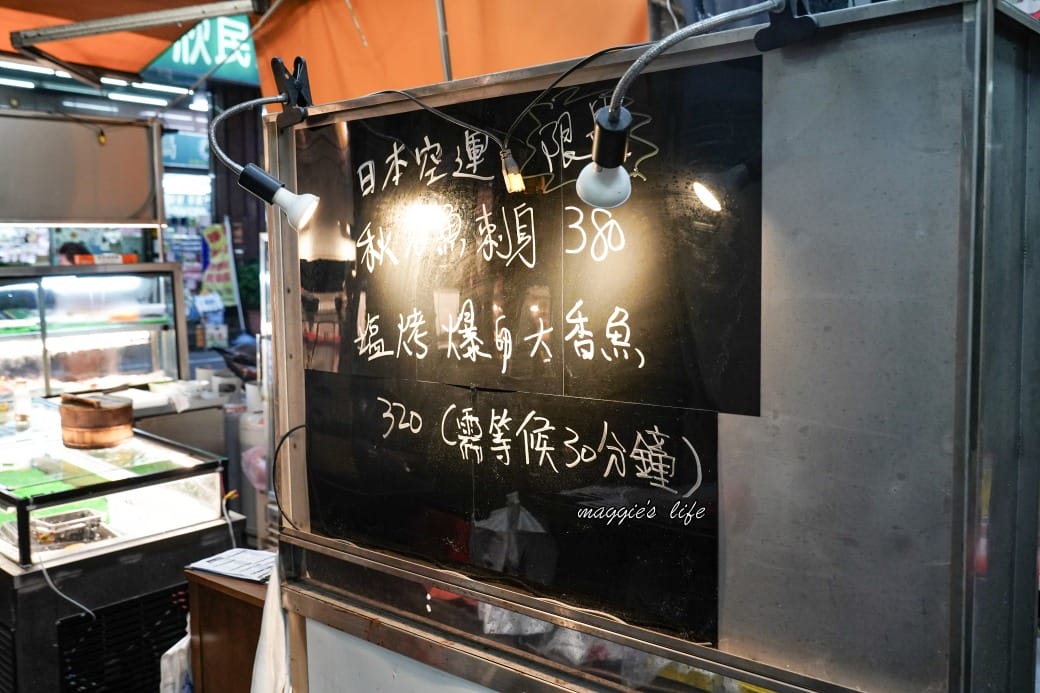 欣民
日本空運 限
秋刀魚刺身 380
塩烤爆卵大香魚
320 (需等候30分鐘)
maggie's life